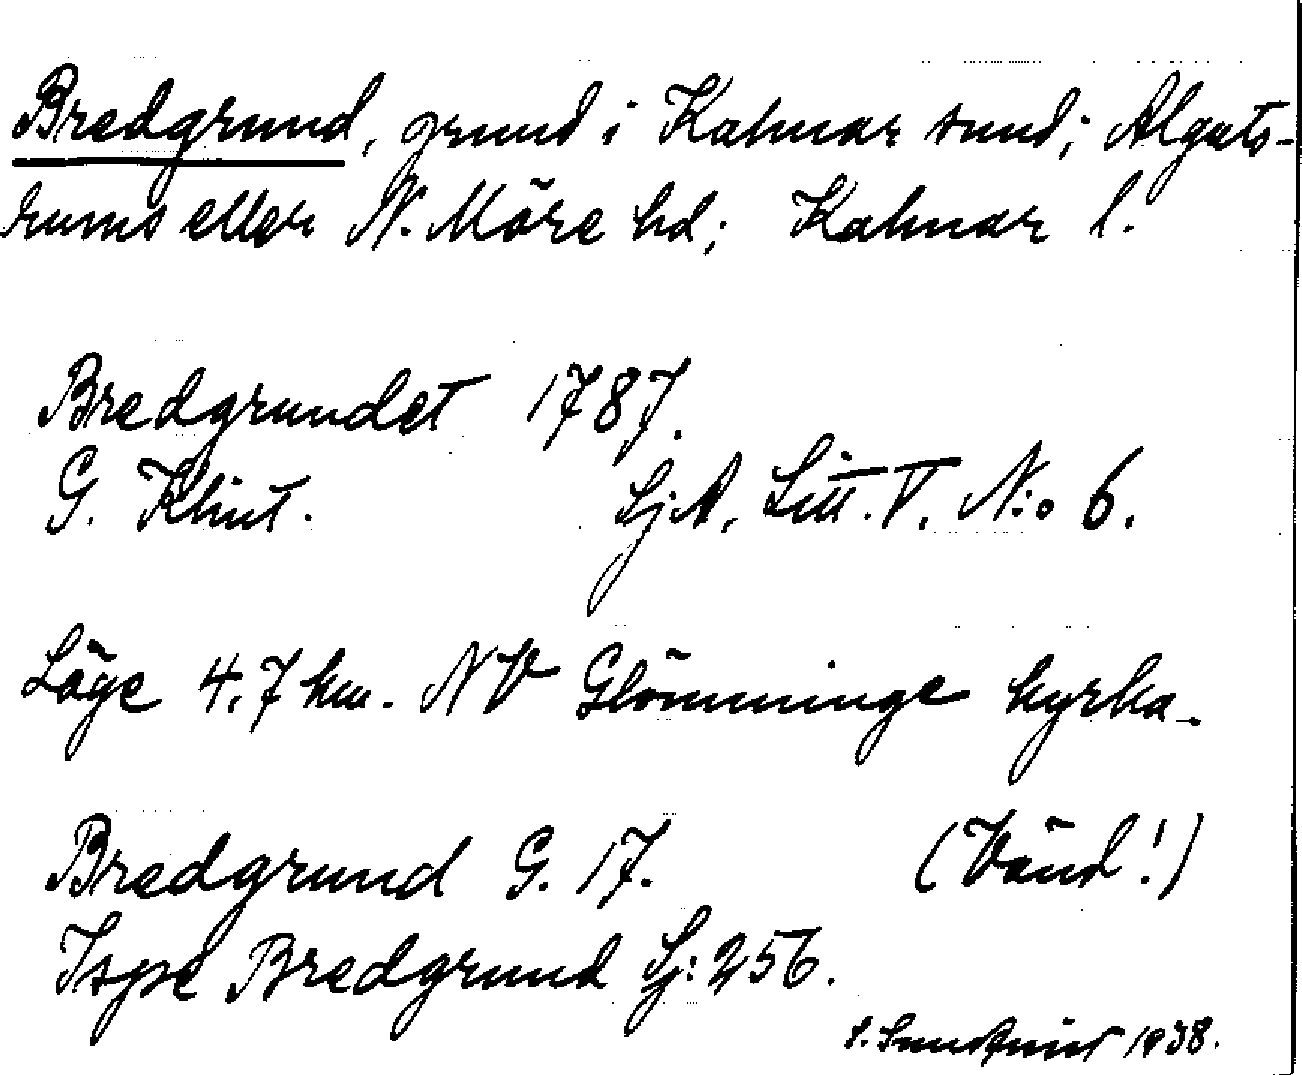 Bredgrund, grund i Kalmar sund; Alguts-
rums eller N. Möre hd; Kalmar l.
Bredgrundet 1787.
G. Klint. SjA, Litt. V. N:o 6.
Läge 4,7 km. NV Glömminge kyrka.
Bredgrund G. 17. (Vänd!)
Ispe Bredgrund Sj: 256.
S. Sundqvist 1938.